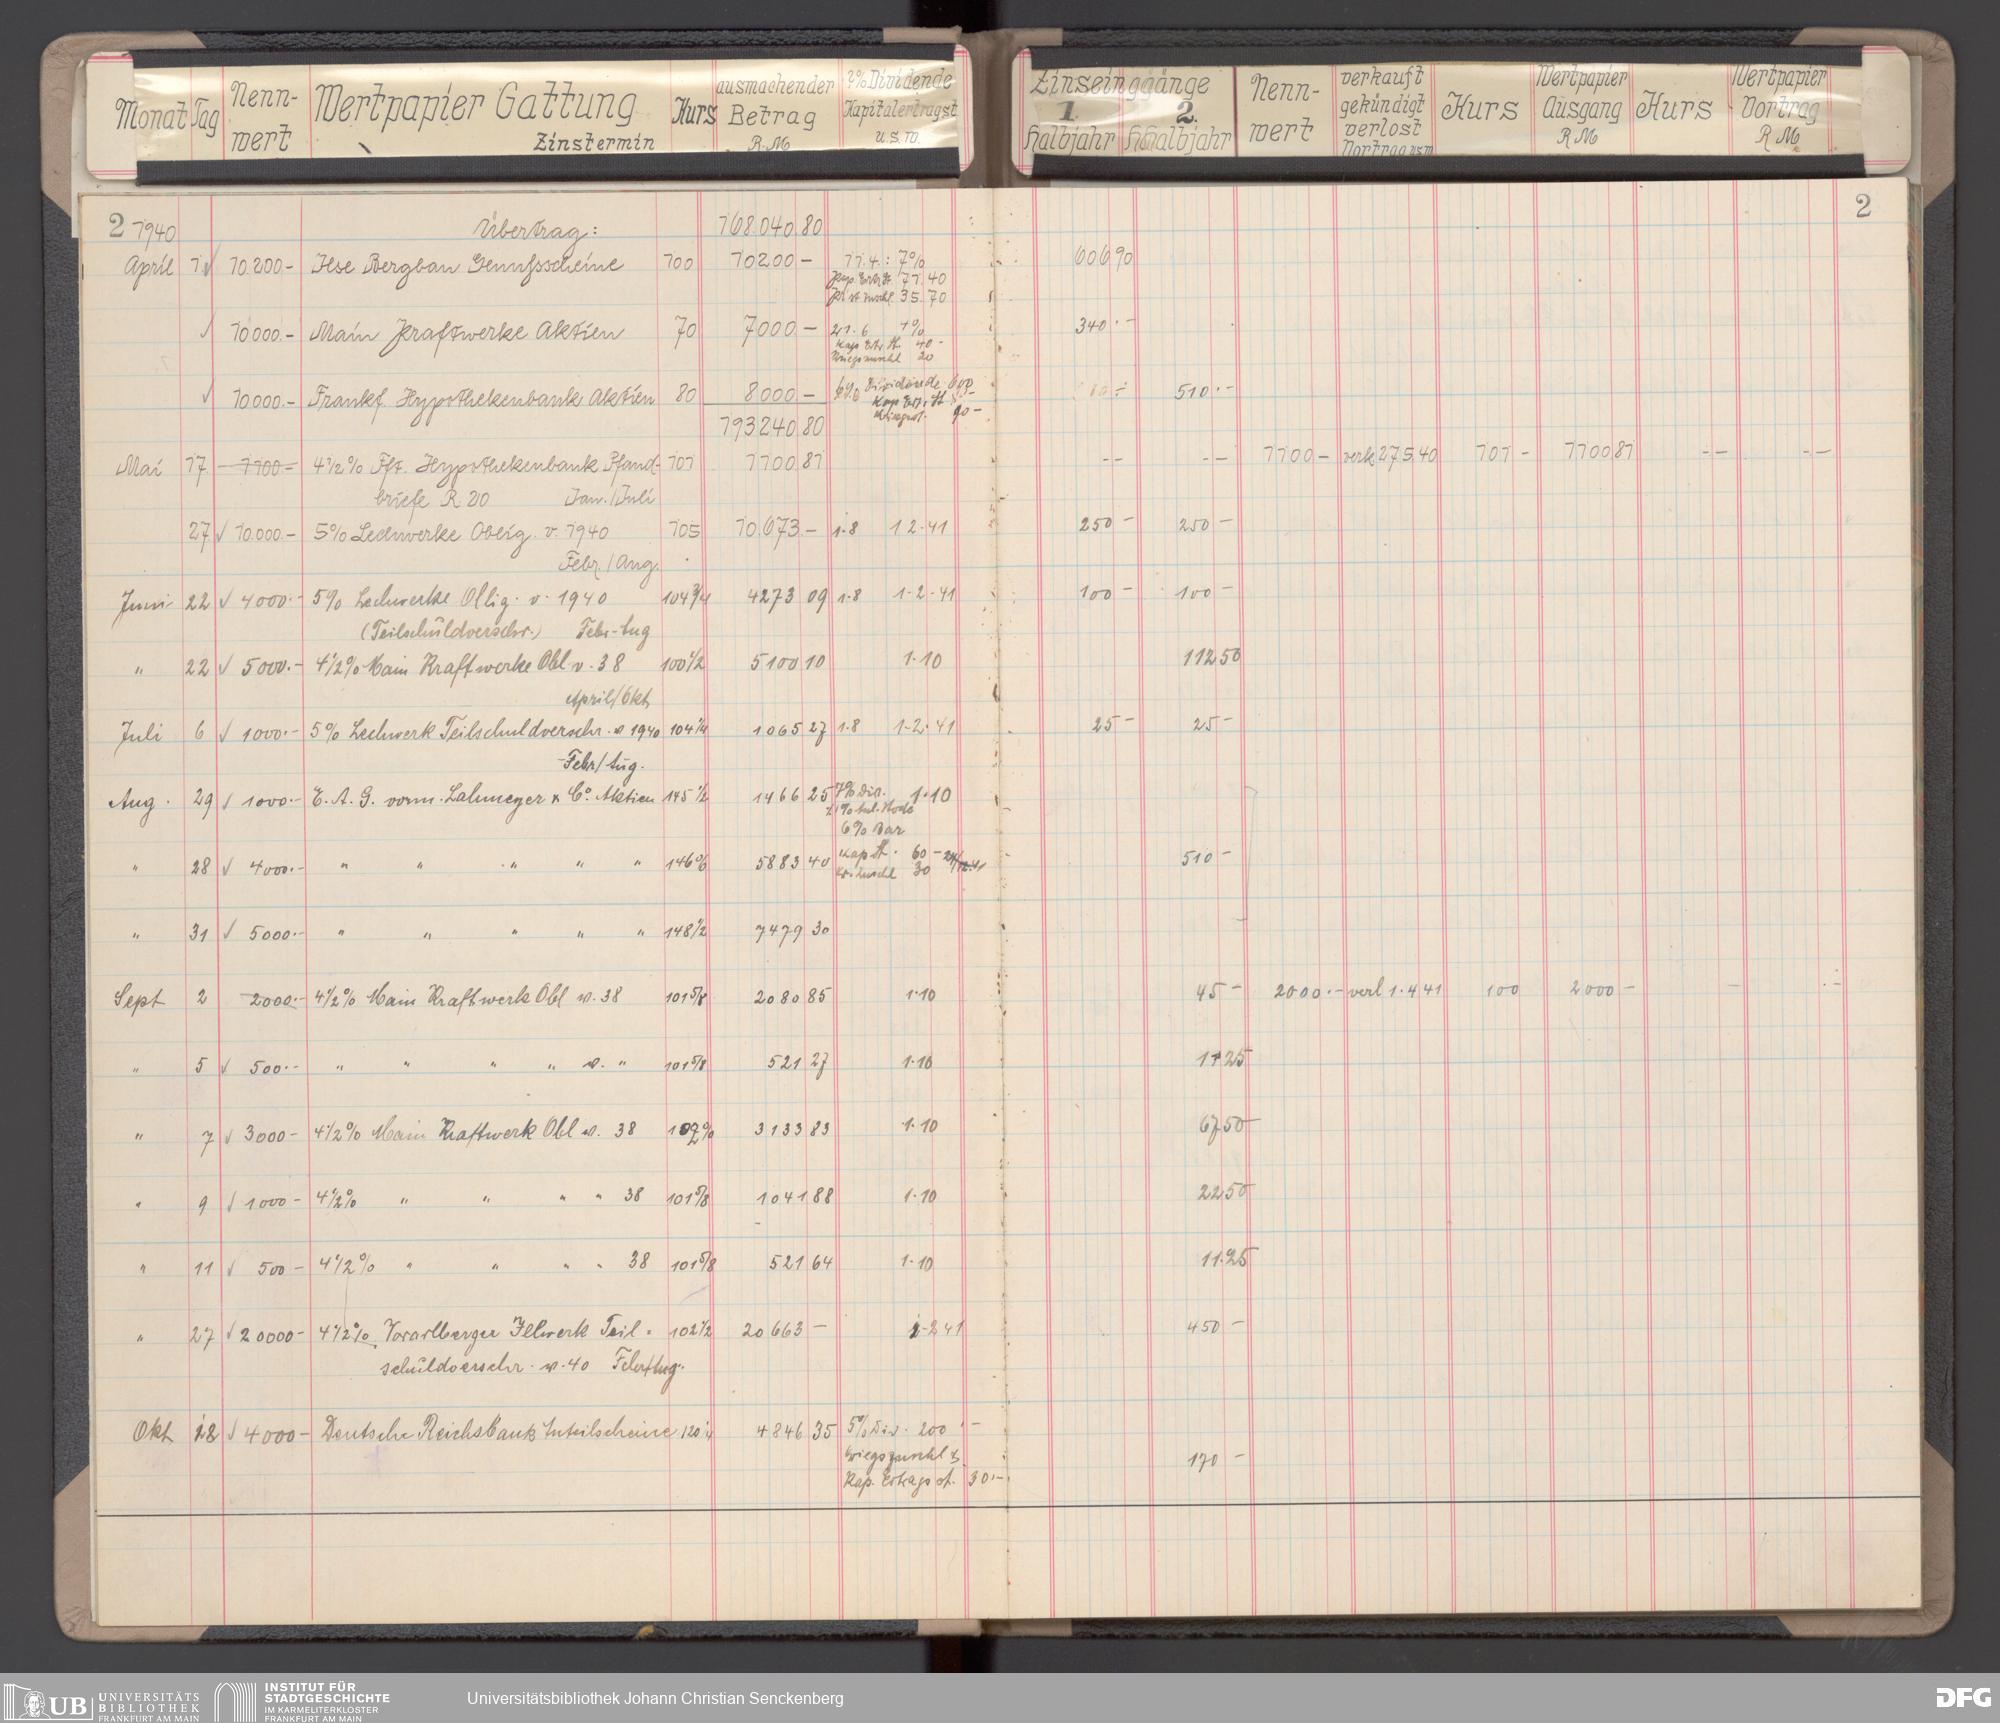 Monat Tag Nennwert Wertpapier Gattung Zinstermin Kurs ausmachender Betrag R.M. 2% Dividende Kapitalertragst u.s.w. Zinseinggänge 1. Halbjahr 2. Halbjahr Nennwert verkauft gekündigt verlost Vortrag usw Kurs Wertpapier Ausgang RM Kurs Wertpapier Vortrag RM
2 1940 Übertrag: 168.040 80 2
April 1 √ 10.200.- Ilse Bergbau Genußscheine 100 10200 - 11.4.: 7% 606 90
Kap. Ertr. St. 71.40
35.70
√ 10000.- Main Kraftwerke Aktien 70 7000 - 340.-
Kap Ertr. St. 40.-
Kriegszuschl 20
√ 10000.- Frankf. Hypothekenbank Aktien 80 8000 - 6% Dividende 600 510.-
193240 80
Mai 17 1100.- 4½% Fft. Hypothekenbank Pfand- 101 1100 81 -- -- 1100 - verk 27.5.40 101 - 1100 81 -- --
briefe R. 20 Jan./Juli
27 √ 10.000.- 5% Lechwerke Oblig. v. 1940 105 10.673.- 1.8 1 2.41 250 - 250 -
Febr./Aug.
Juni 22 √ 4000.- 5% Lechwerke Oblig. v. 1940 104¾ 4273 09 1.8 1.2.41 100 - 100 -
(Teilschuldverschr.) Febr-Aug
" 22 √ 5000.- 4½% Main Kraftwerke Obl v. 38 100½ 5100 10 1.10 112 50
April/Okt
Juli 6 √ 1000.- 5% Lechwerk Teilschuldverschr. v 1940 104¼ 1065 27 1.8 1.2.41 25 - 25 -
Febr/Aug.
Aug. 29 √ 1000.- E. A. G. vorm. Lahmeyer & Co. Aktien 145½ 1466 25 7% Div. 1.10
6% Bar
" 28 √ 4000.- " " " " " 146% 5883 40 Kap St. 60 - 510 -
Kr. Zuschl 30
" 31 √ 5000.- " " " " " 148½ 7479 30
Sept 2 2000.- 4½% Main Kraftwerk Obl v. 38 101⅝ 2080 85 1.10 45 - 2000.- verl 1.4 41 100 2000 - - --
" 5 √ 500.- " " " " v. " 101⅝ 521 27 1.10 11 25
" 7 √ 3000 - 4½% Main Kraftwerk Obl v. 38 102% 3133 83 1.10 67 50
" 9 √ 1000 - 4½% " " " " 38 101⅝ 1041 88 1.10 22 50
" 11 √ 500 - 4½% " " " " 38 101⅝ 521 64 1.10 11.25
" 27 √ 20000 - 4½% Vorarlberger Illwerk Teil- 102½ 20 663 - 1-2 41 450 -
schuldverschr. v. 40 Febr/Aug.
Okt 28 √ 4000 - Deutsche Reichsbank Anteilscheine 120¼ 4846 35 5% Div. 200.-
Kriegszuschl & 170 -
Kap. Ertrags st. 30.-
UB UNIVERSITÄTS
BIBLIOTHEK
FRANKFURT AM MAIN
INSTITUT FÜR
STADTGESCHICHTE
IM KARMELITERKLOSTER
FRANKFURT AM MAIN
Universitätsbibliothek Johann Christian Senckenberg
DFG